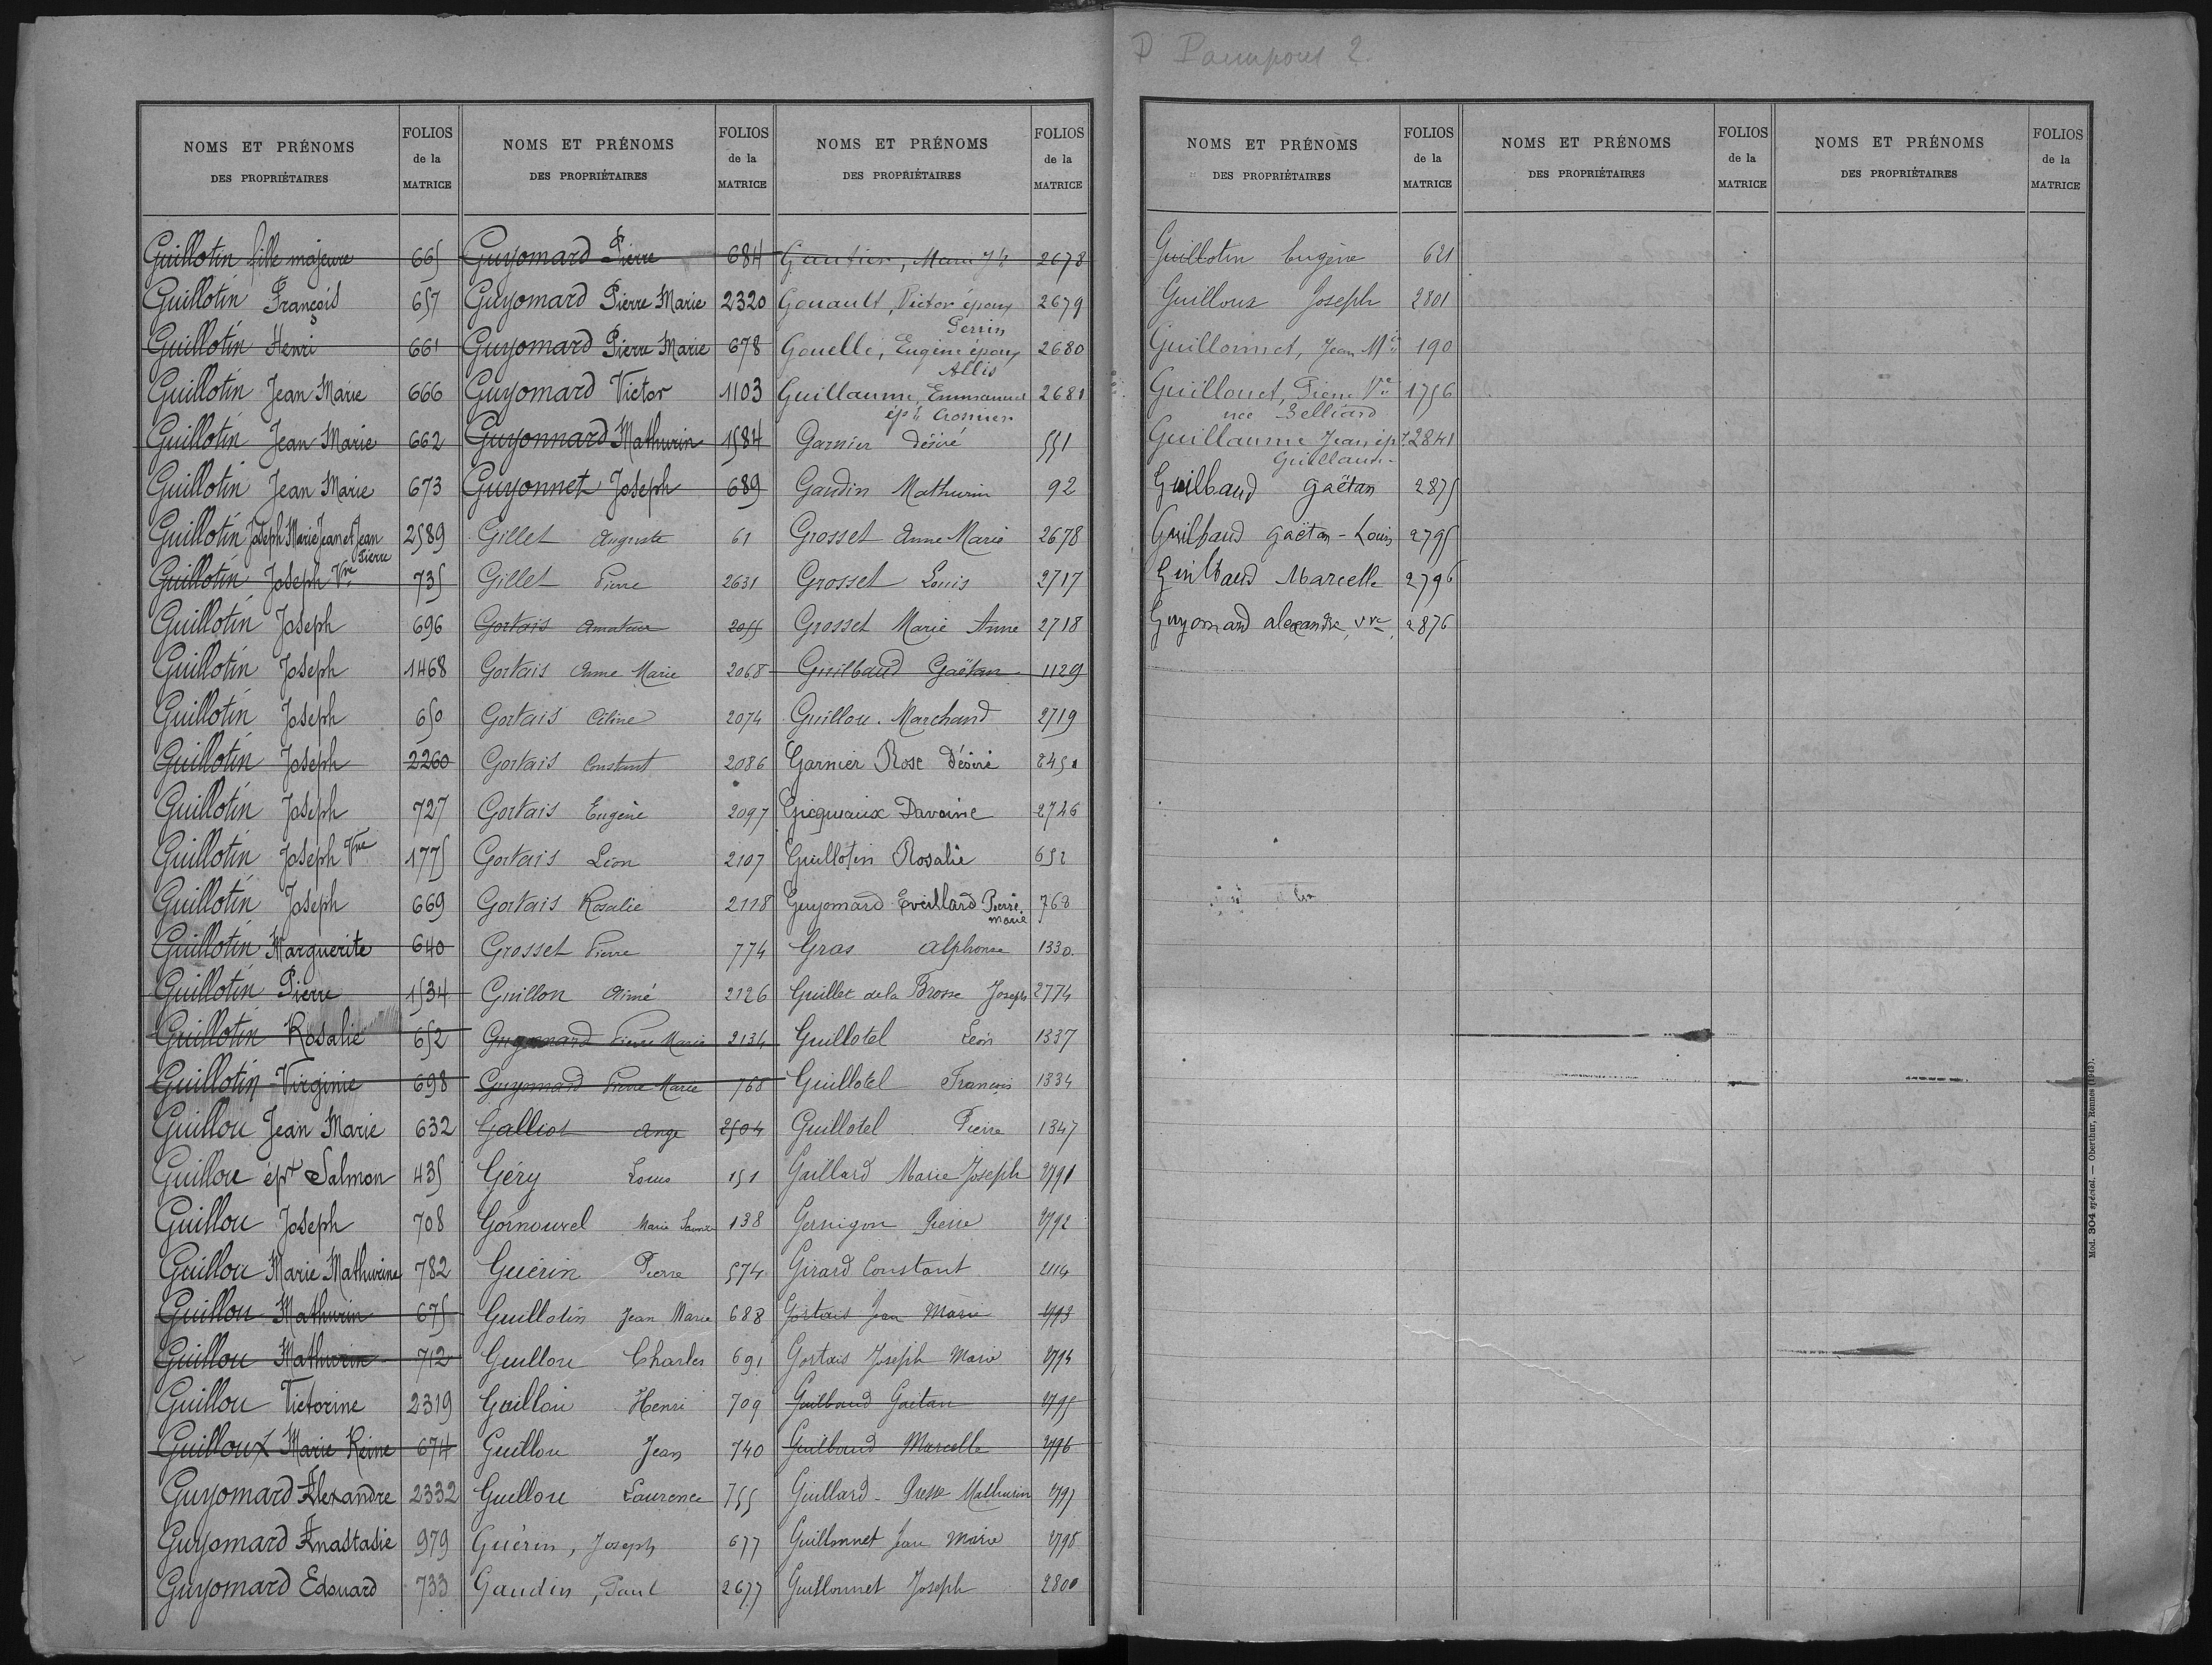 P Paimpont 2
NOMS ET PRÉNOMS DES PROPRIÉTAIRES
FOLIOS de la MATRICE
NOMS ET PRÉNOMS DES PROPRIÉTAIRES
FOLIOS de la MATRICE
NOMS ET PRÉNOMS DES PROPRIÉTAIRES
FOLIOS de la MATRICE
Guillotin fille majeure 665
Guillotin François 657
Guillotin Henri 661
Guillotin Jean Marie 666
Guillotin Jean Marie 662
Guillotin Jean Marie 673
Guillotin Joseph Marie Jean et Jean Pierre 2589
Guillotin Joseph Vve 735
Guillotin Joseph 696
Guillotin Joseph 1468
Guillotin Joseph 650
Guillotin Joseph 2260
Guillotin Joseph 727
Guillotin Joseph Vve 1775
Guillotin Joseph 669
Guillotin Marguerite 640
Guillotin Pierre 1534
Guillotin Rosalie 652
Guillotin Virginie 698
Guillou Jean Marie 632
Guillou épse Salmon 435
Guillou Joseph 708
Guillou Marie Mathurine 782
Guillou Mathurin 675
Guillou Mathurin 712
Guillou Victorine 2319
Guilloux Marie Reine 674
Guyomard Alexandre 2332
Guyomard Anastasie 979
Guyomard Edouard 733
Guyomard Pierre 684
Guyomard Pierre Marie 2320
Guyomard Pierre Marie 678
Guyomard Victor 1103
Guyonnard Mathurin 1584
Guyonnet Joseph 689
Gillet Auguste 61
Gillet Pierre 2631
Gortais Amateur 2055
Gortais Anne Marie 2068
Gortais Céline 2074
Gortais Constant 2086
Gortais Eugène 2097
Gortais Léon 2107
Gortais Rosalie 2118
Grosset Pierre 774
Guillon Aimé 2126
Guyomard Pierre Marie 2134
Guyomard Pierre Marie 768
Galliot Ange 2504
Géry Louis 151
Gornouvel Marie 138
Guérin Pierre 574
Guillotin Jean Marie 688
Guillou Charles 691
Guillou Henri 709
Guillou Jean 740
Guillou Laurence 755
Guérin, Joseph 677
Gaudin, Paul 2677
Gautier, Marie Jh 2678
Gouault, Victor époux Perrin 2679
Gouelle, Eugène époux Allis 2680
Guillaume, Emmanuel épx Crosnier 2681
Garnier Désiré 551
Gaudin Mathurin 92
Grosset Anne Marie 2678
Grosset Louis 2717
Grosset Marie Anne 2718
Guilbaud Gaëtan 1129
Guillou. Marchand 2719
Garnier Rose Désiré 2451
Gicquiaux Davoine 2746
Guillotin Rosalie 652
Guyomard Eveillard Pierre marie 768
Gras Alphonse 1330.
Guillet de la Brosse Joseph 2774
Guillotel Léon 1337
Guillotel François 1334
Guillotel Pierre 1347
Gaillard Marie Joseph 2791
Gernigon Pierre 2792
Girard Constant 2114
Gortais Jean Marie 2793
Gortais Joseph Marie 2794
Guilbaud Gaëtan 2795
Guilbaud Marcelle 2796
Guillard - Presse Mathurin 2797
Guillonnet Jean Marie 2798
Guillonnet Joseph 2800
NOMS ET PRÉNOMS DES PROPRIÉTAIRES
FOLIOS de la MATRICE
NOMS ET PRÉNOMS DES PROPRIÉTAIRES
FOLIOS de la MATRICE
NOMS ET PRÉNOMS DES PROPRIÉTAIRES
FOLIOS de la MATRICE
Guillotin Eugène 621
Guilloux Joseph 2801
Guillonnet, Jean Mie 190
Guillouet, Pierre Vve née Belliard 1756
Guillaume Jean ép. 2841
Guilbaud Gaëtan 2875
Guilbaud Gaëtan-Louis 2795
Guilbaud Marcelle 2796
Guyomard Alexandre, vve 2876
Mod. 304 spécial. — Oberthur, Rennes (1913).